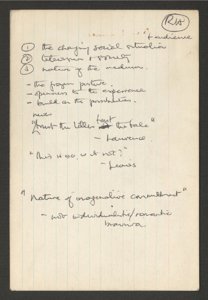 RIA
+ audience
① the changing social situation
② television + society
③ nature of the medium.
- the frozen posture.
- openness to the experience
- build on the foundation.
"trust the teller but the tale"
- Lawrence
"This is so, is it not?"
- Leavis
"Nature of imaginative commitment"
- not individualistic/romantic